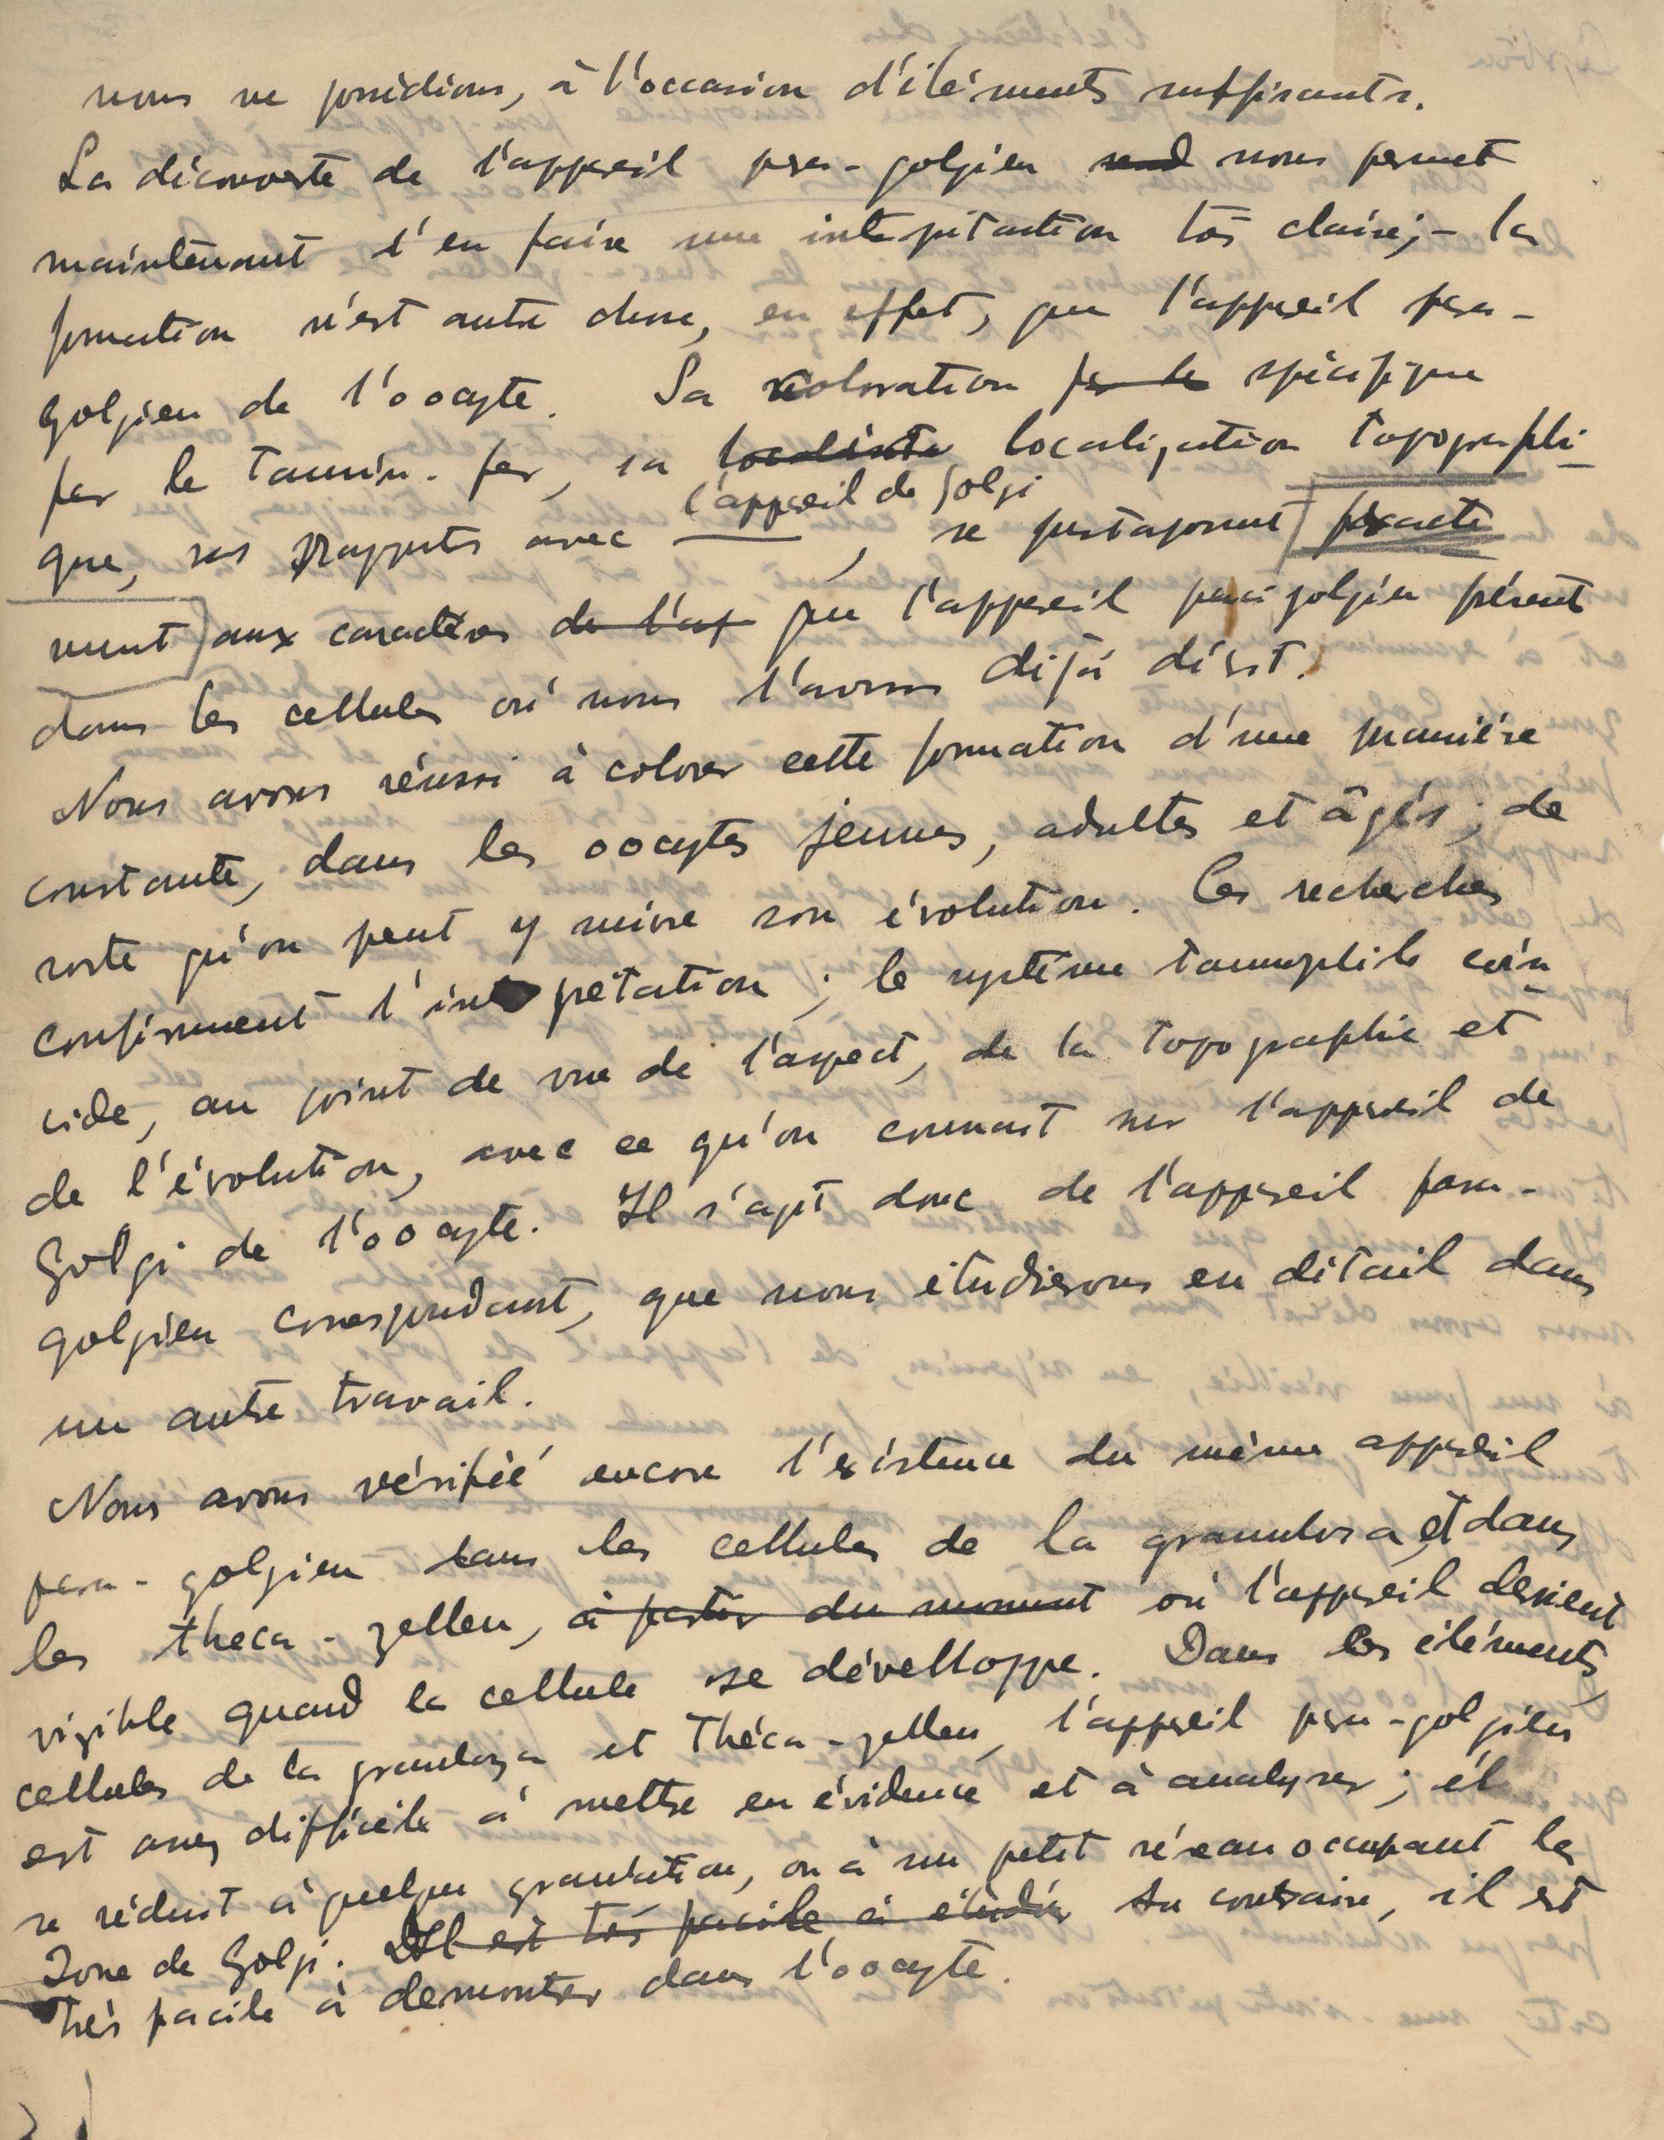 nous ne possédions, à l'occasion d'éléments suffisants.
La découverte de l'appareil para-golgien nous permet
maintenant d'en faire une interprétation très claire; - la
formation n'est autre chose, en effet, que l'appareil para-
golgien de l'oocyte. Sa coloration par le spécifique
par le tannin-fer, sa localisation topographi-
l'appareil de Golgi
que, ses rapports avec , se justaposent exacte
ment aux caractères de l'ap que l'appareil paragolgien présent
dans les cellules où nous l'avons déjà décrit.
Nous avons réussi à colorer cette formation d'une manière
constante, dans les oocytes jeunes, adultes et âgés; de
sorte qu'on peut y suivre son évolution. Ces recherches
confirment l'interprétation; le système tannophile coïn
cide, au point de vue de l'aspect, de la topographie et
de l'évolution, avec ce qu'on connaît sur l'appareil de
Golgi de l'oocyte. Il s'agit donc de l'appareil para-
golgien correspondant, que nous étudierons en détail dans
un autre travail.
Nous avons vérifié encore l'existence du même appareil
para-golgien dans les cellules de la granulosa, et dans
les theca-zellen, à partir du moment où l'appareil devient
visible quand la cellule se dévelloppe. Dans les éléments,
cellules de la granuloza et Théca-zellen, l'appareil para-golgien
est assez difficile à mettre en évidence et à analyser; il
se réduit à quelque granulation, ou à un petit réseau occupant la
Zone de Golgi. Il est très facile à étudier Au contraire, il est
très facile à demontrer dans l'oocyte.